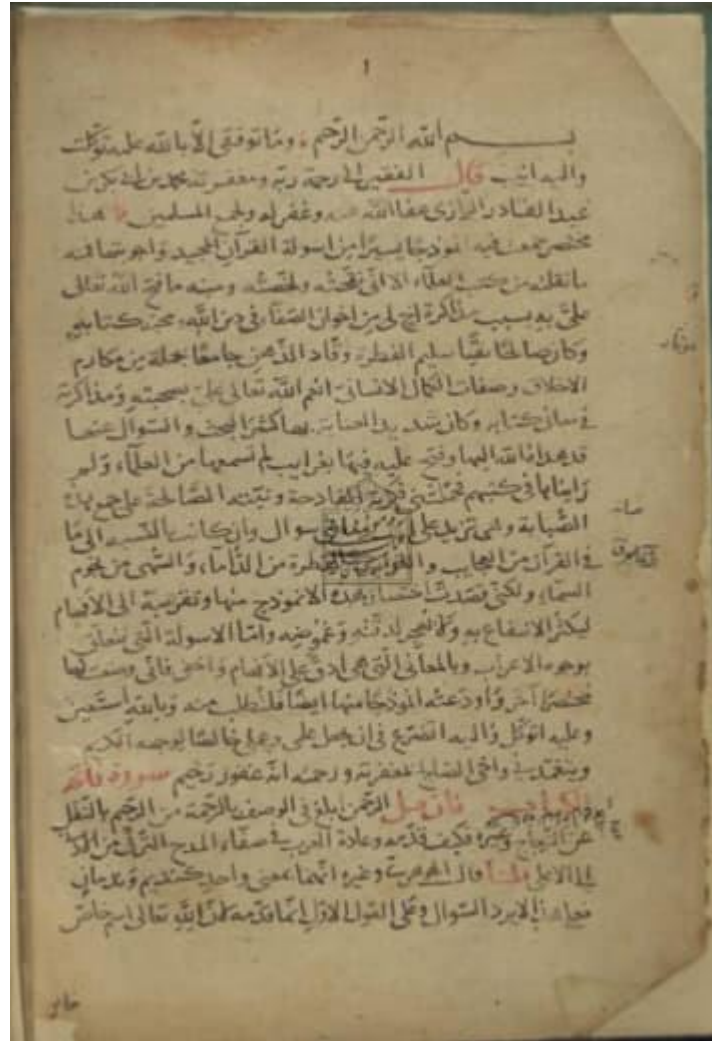 ١
بسم الله الرحمن الرحيم، وما توفيقى الا بالله عليه توكلت
واليه انيب قال الفقير الى رحمة ربه ومغفرته محمد بن ابى بكر بن
عبد القادر الرازى عفا الله عنه وغفر له ولجميع المسلمين هذا
مختصر جمعت فيه انموذجا يسيرا من اسولة القران المجيد واجوبتها فمنه
ما نقلته من كتب العلماء الا انى نقحته ولخصته ومنه ما فتح الله تعالى
علىّ به بسبب مذاكرة اخ لى من اخوان الصفاء فى دين الله، محب كتابه
وكان صالحا تقيا سليم الفطرة وقاد الذهن جامعا لجملة من مكارم
الاخلاق وصفات الكمال الانسانى انعم الله تعالى علىّ بصحبته ومذاكرته
فى معانى كتابه وكان شديد العناية بها كثير البحث والسوال عنها
قد هداه الله اليها وفتح عليه فيها بغرايب لم نسمعها من العلماء ولم
رايناها فى كتبهم فحملتنى فكرته القادحة ونيته الصالحة على جمع هذه
الصبابة وهى تزيد على سوال وان كانت بالنسبة الى ما
فى القران من العجايب والغرايب كالقطرة من الداماء، والسهى من نجوم
السماء ولكنى قصدت اختصار هذه الانموذج منها وتقريبه الى الافهام
ليكثر الانتفاع به ولا يهجر لدقته وغموضه واما الاسولة التى تتعلق
بوجوه الاعراب وبالمعانى التى هى ادق على الافهام واخفى فانى وضعت لها
مختصرا آخر واودعته انموذجا منها ايضا فلتطلب منه وبالله استعين
وعليه اتوكل واليه اتضرع فى ان يجعل علمى وعملى خالصا لوجهه الكريم
ويتغمدنى واخى بمغفرته ورحمته انه غفور رحيم سورة فاتحة
الكتاب فان قيل الرحمن ابلغ فى الوصف بالرحمة من الرحيم بالنقل
عن الزجاج وغيره فكيف قدمه وعادة العرب فى صفات المدح الترقى من الادنى
الى الاعلى قلنا قال الجوهرى وغيره انهما بمعنى واحد كنديم وندمان
فعلى هذا لا يرد السوال وعلى القول الاول انما قدمه لان الله تعالى اسم خاص